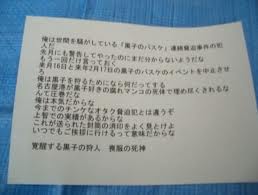 俺は世間を騒がしている「黒子のバスケ」連続脅迫事件の犯
人だ
先月にも警告してやったのにまだ分からないようだな
もう一回だけ言っておく
来月16日と来年2月17日の黒子のバスケのイベントを中止させ
ろ
俺は黒子を狩るためになら何だってする
名古屋港が黒子好きの腐れマンコの死体で埋め尽くされるな
んて圧巻だな
俺は本気だからな
今までのチンケなオタク脅迫犯とは違うぞ
上智での実績があるからな
これが送られた封筒の消印をよく見とけよ
いつでもご挨拶に行けるって意味だからな
覚醒する黒子の狩人 喪服の死神